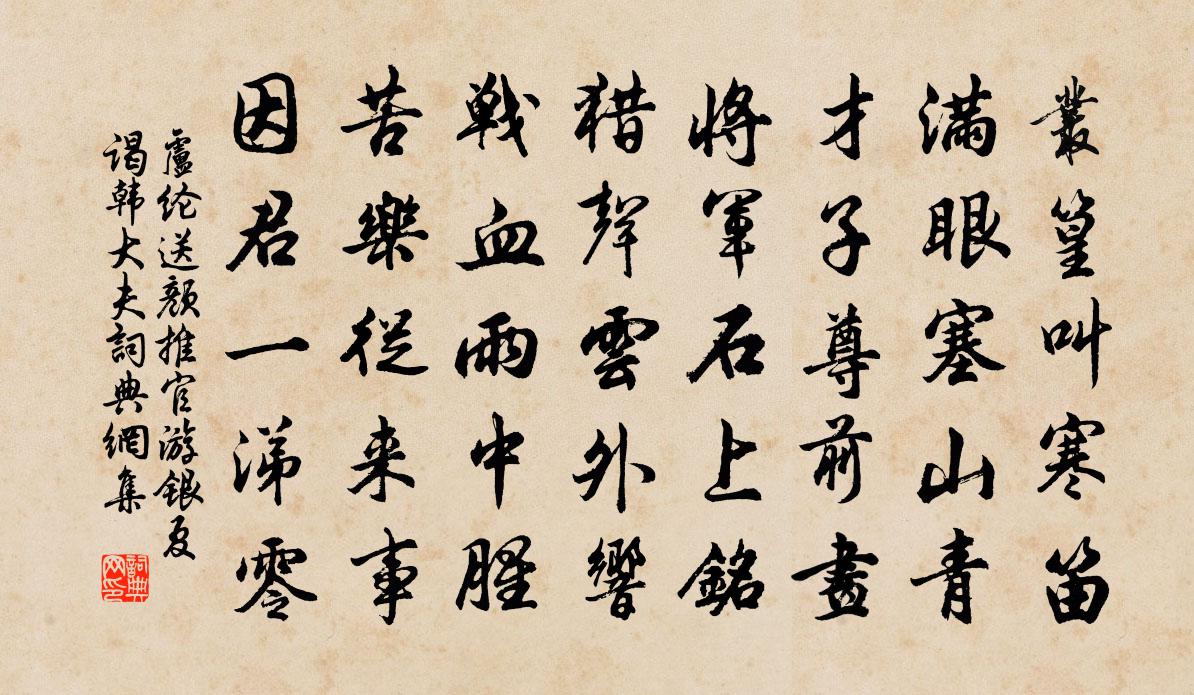 叢篁叫寒笛
滿眼塞山青
才子尊前畫
將軍石上銘
猎聲雲外響
戦血雨中腥
苦樂從来事
因君一涕零
盧纶送颜推官游銀夏
谒韩大夫詞典網集
詞典网印